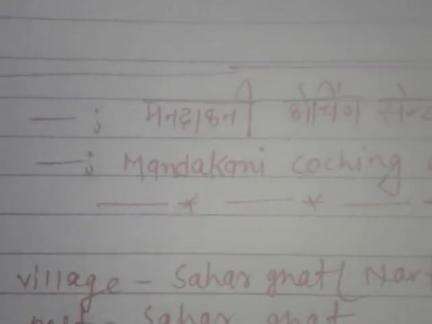 —: मन्दाकनी कोचिंग सेन्ट
—: Mandakani coching
—— * —— * ——
village - Sahar ghat ( Nar
post - Sahar ghat